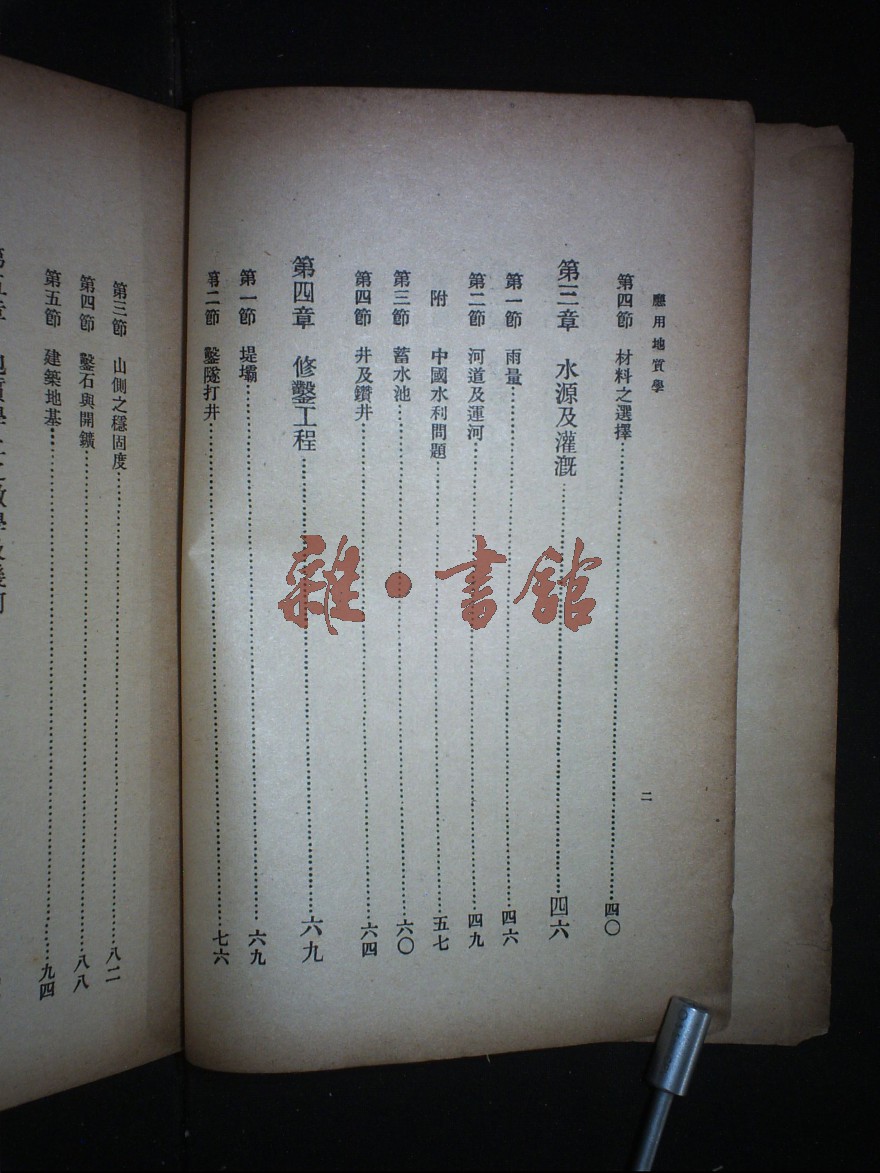 應用地質學
二
第四節 材料之選擇……四〇
第三章 水源及灌溉……四六
第一節 雨量……四六
第二節 河道及運河……四九
附 中國水利問題……五七
第三節 蓄水池……六〇
第四節 井及鑽井……六四
第四章 修鑿工程……六九
第一節 堤壩……六九
第二節 鑿隧打井……七六
第三節 山側之穩固度……八二
第四節 鑿石與開鑛……八八
第五節 建築地基……九四
雜·書館